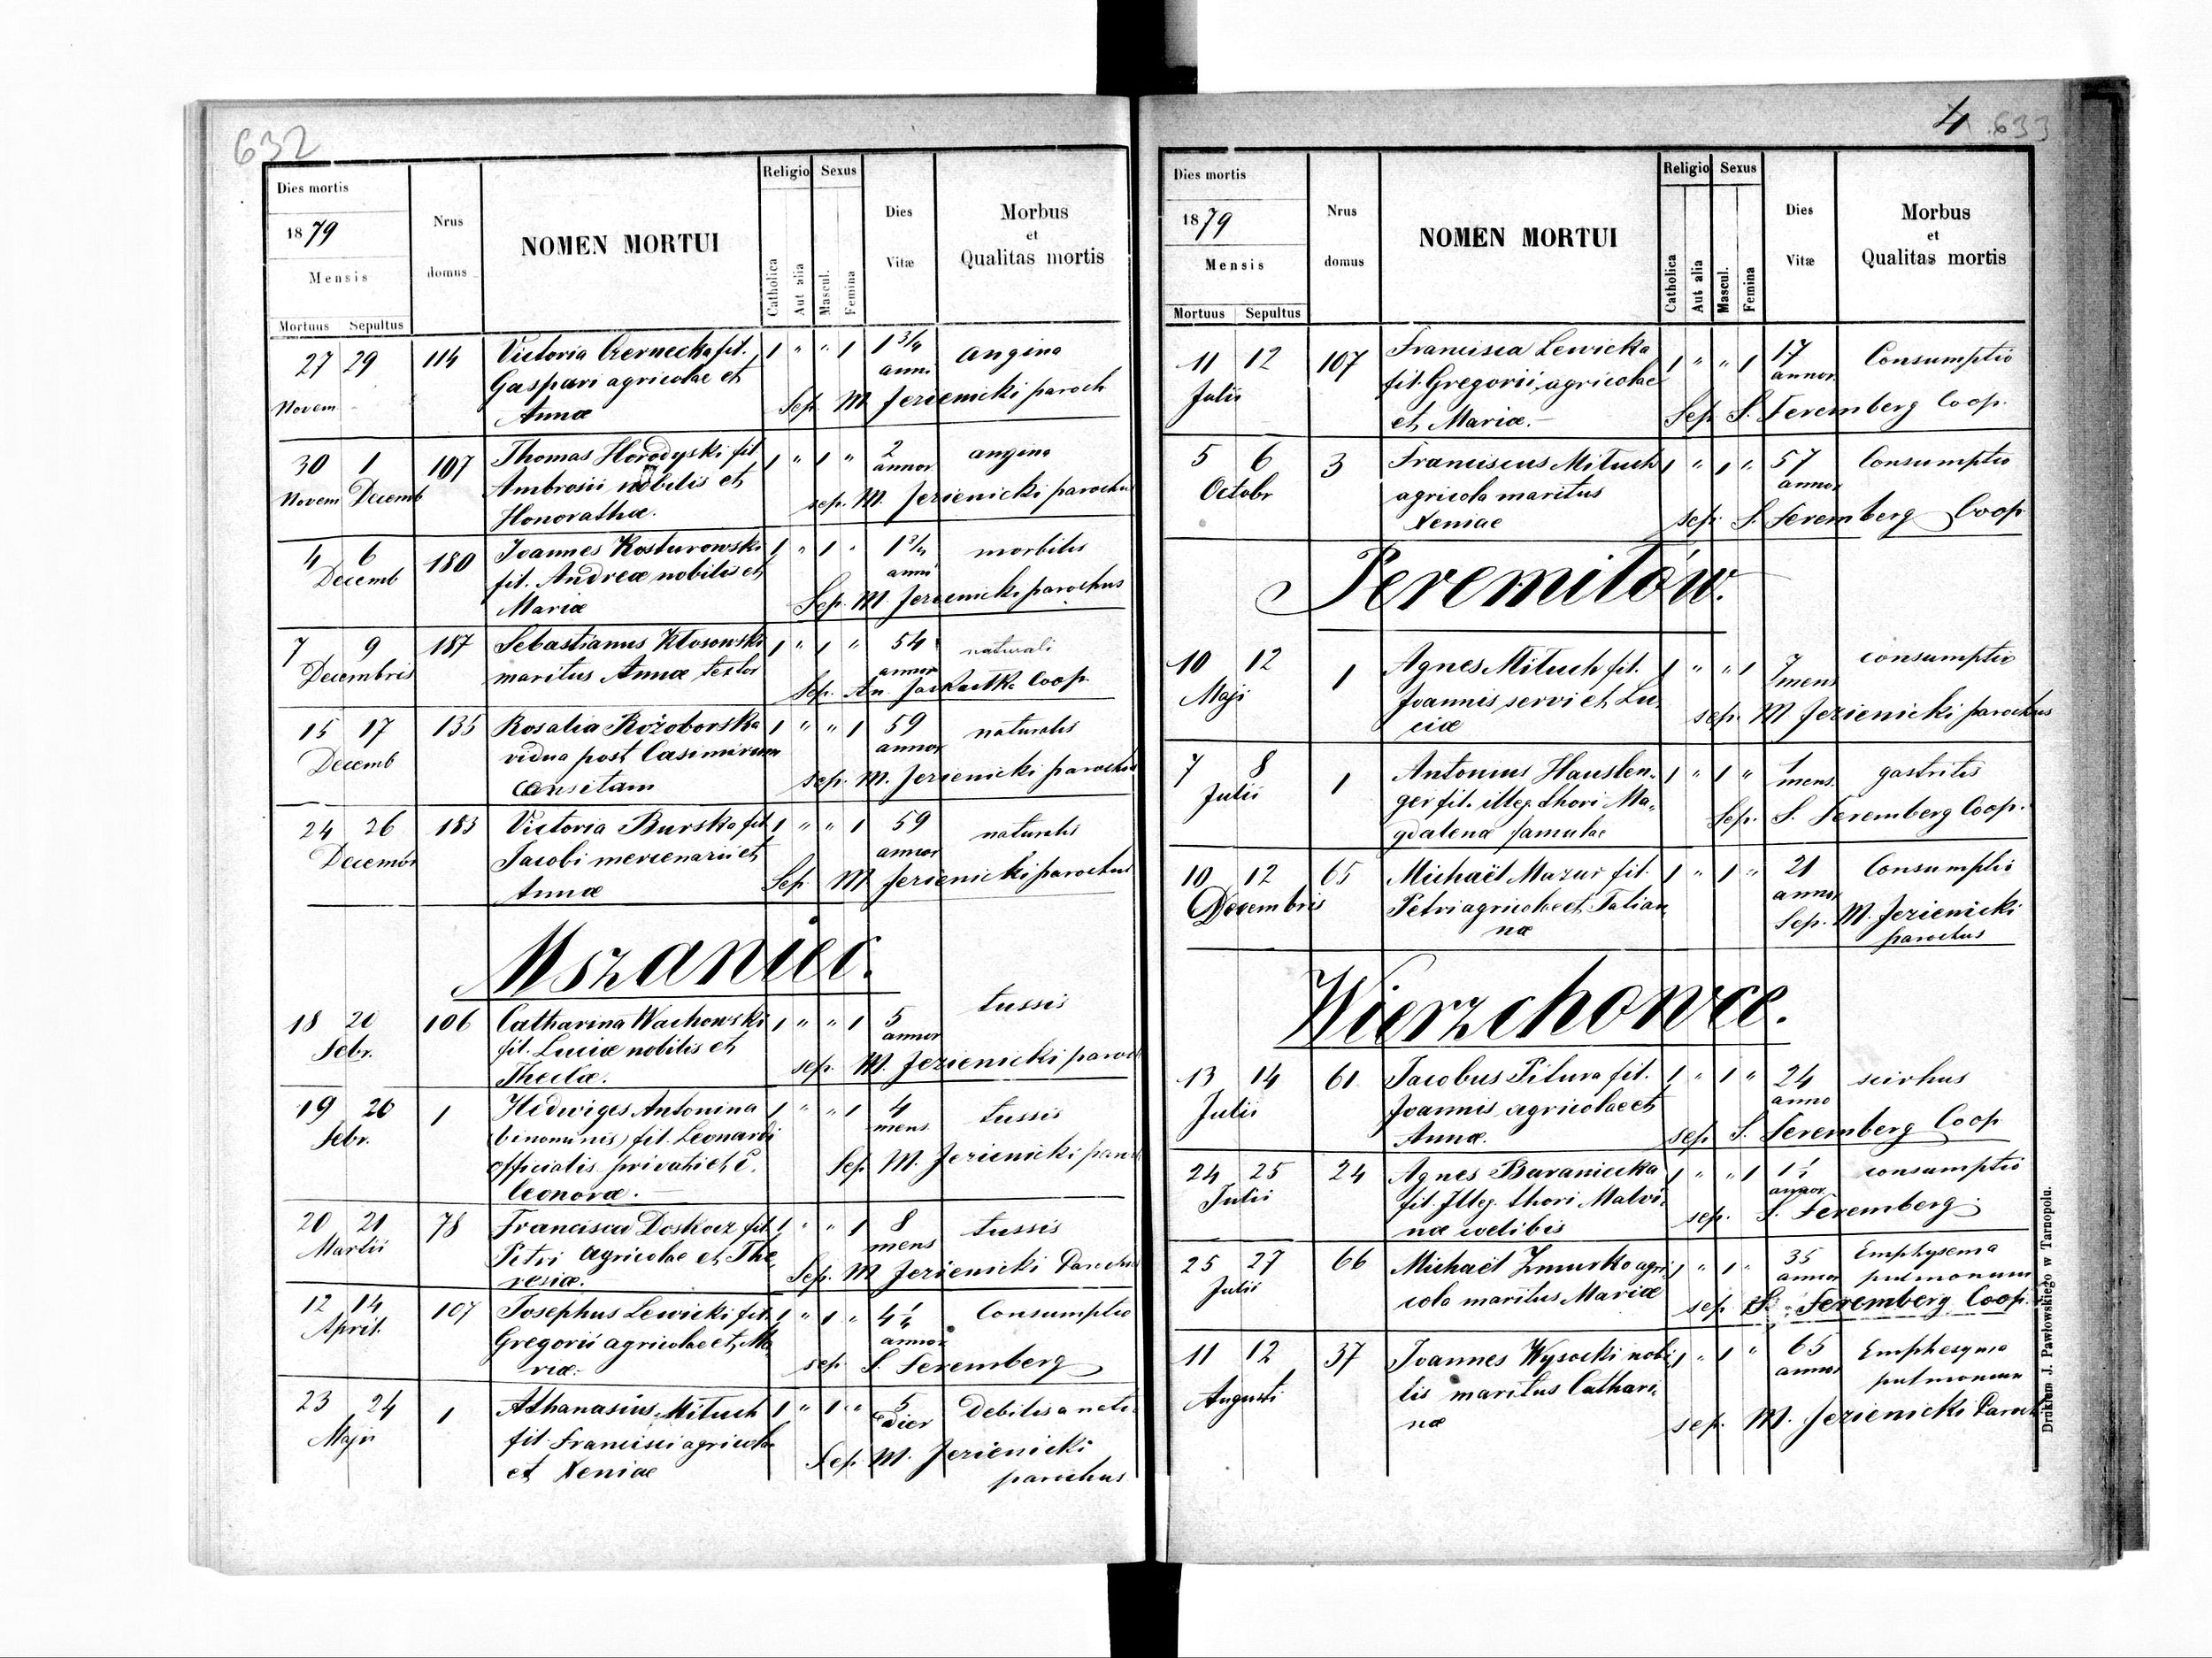 632
Dies mortis
1879
Mensis
Mortuus Sepultus
Nrus
domus
NOMEN MORTUI
Religio
Catholica
Aut alia
Sexus
Mascul.
Femina
Dies
Vitæ
Morbus
et
Qualitas mortis
27 29 114 Victoria Czernecka fil. 1 " " 1 1 3/4 angina
anni
Gaspari agricolae et
Novem Annæ Sep. M. Jezienicki paroch
30 1 107 Thomas Horodyski fil 1 " 1 " 2 angina
annor
Novem Decemb Ambrosii nobilis et
Honorathæ. sep. M. Jezienicki parochus
4 6 180 Joannes Kosturowski 1 " 1 " 1 3/4 morbilis
anni
Decemb fil. Andreæ nobilis et
Mariæ Sep. M. Jezienicki parochus
7 9 187 Sebastianus Kłosowski 1 " 1 " 54 naturali
annor
Decembris maritus Annæ textor
Sep. An. Coop.
15 17 135 Rosalia Rożoborska 1 " " 1 59 naturalis
annor
Decemb vidua post Casimirum
sep. M. Jezienicki parochus
24 26 183 Victoria Burska fil 1 " " 1 59 naturalis
annor
Decembr Jacobi mercenarii et
Annæ Sep. M Jezienicki parochus
Mszaniec.
18 20 106 Catharina Wachowski 1 " " 1 5 tussis
annor
Febr. fil. Luciæ nobilis et
Theclæ. sep. M. Jezienicki paroch
19 20 1 Hedwiges Antonina 1 " " 1 4 tussis
mens
Febr. (binominis) fil. Leonardi
officialis privati et
Leonoræ. Sep. M. Jezienicki
20 21 78 Francisca Doskocz fil. 1 " " 1 8 tussis
mens
Martii Petri agricolae et The
resiæ. Sep. M Jezienicki Parochus
12 14 107 Josephus Lewicki fil. 1 " 1 " 4 1/2 Consumptio
annor
April. Gregorii agricolae et Ma
riæ. sep. S. Feremberg
23 24 1 Athanasius Mituch 1 " 1 " 5 Debilis a nati
dier
Maji fil. Francisci agricolae
et Xeniae Sep. M. Jezienicki
parochus
4 633
Dies mortis
1879
Mensis
Mortuus Sepultus
Nrus
domus
NOMEN MORTUI
Religio
Catholica
Aut alia
Sexus
Mascul.
Femina
Dies
Vitæ
Morbus
et
Qualitas mortis
11 12 107 Francisca Lewicka 1 " " 1 17 Consumptio
annor
Julii fil. Gregorii agricolae
et Mariæ. Sep. S. Feremberg Coop.
5 6 3 Franciscus Mituch 1 " 1 " 57 Consumptio
annor
Octobr agricola maritus
Xeniae sep. S. Feremberg Coop
Peremilów.
10 12 1 Agnes Mituch fil. 1 " " 1 7 consumptio
mens
Maji Joannis servi et Lu
ciæ sep. M Jezienicki parochus
7 8 1 Antonius Hauslen 1 " 1 " 1 gastritis
mens.
Julii ger fil. illeg. thori Ma
gdalena famulae Sep. S. Feremberg Coop.
10 12 65 Michaël Mazur fil. 1 " 1 " 21 Consumptio
annor
Decembris Petri agricolae et Tatian
næ Sep. M. Jezienicki
parochus
Wierzchowce.
13 14 61 Jacobus Pitura fil. 1 " 1 " 24 scirhus
anno
Julii Joannis agricolae et
Annæ. sep. S. Feremberg Coop
24 25 24 Agnes Baraniecka 1 " " 1 1 1/2 consumptio
annor
Julii fil. Illeg. thori Malvi
næ coelibis sep. S. Feremberg
25 27 66 Michaël Zmurko agri 1 " 1 " 35 Emphysema
annor pulmonum
Julii cola maritus Mariæ
sep. S. Feremberg Coop.
11 12 37 Joannes Wysocki nobi 1 " 1 " 65 Emphesyma
annor pulmonum
Augusti lis maritus Cathari
næ sep. M. Jezienicki Paroch
Drukiem J. Pawłowskiego w Tarnopolu.